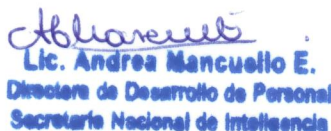 Lic. Andrea Mancuello E.
Directora de Desarrollo de Personal
Secretaría Nacional de Inteligencia